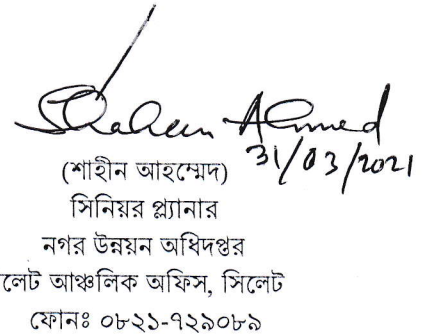 Shaheen Ahmed
31/03/2021
(শাহীন আহম্মেদ)
সিনিয়র প্ল্যানার
নগর উন্নয়ন অধিদপ্তর
লেট আঞ্চলিক অফিস, সিলেট
ফোনঃ ০৮২১-৭২৯০৮৯